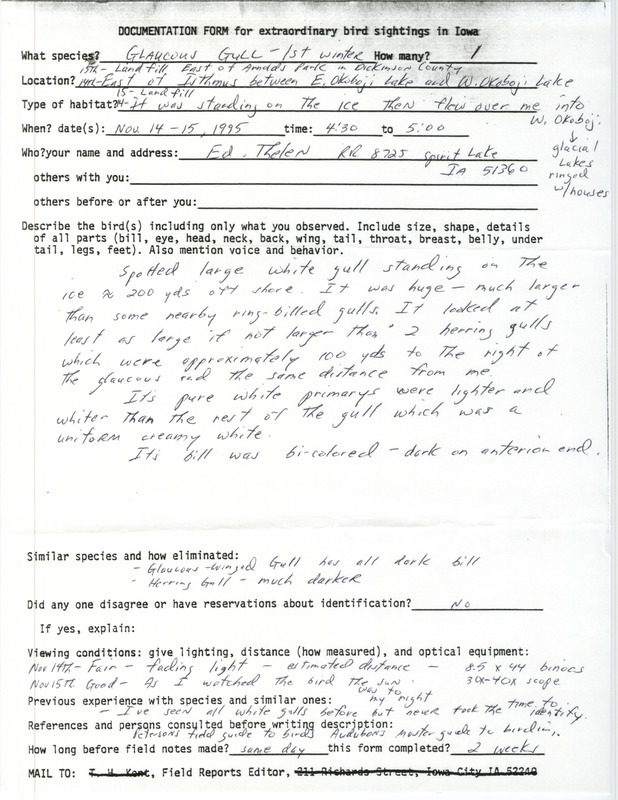 DOCUMENTATION FORM for extraordinary bird sightings in Iowa
What species? Glaucous Gull - 1st winter How many? 1
15th - Landfill East of Arnolds Park in Dickinson County
Location? 14th - East of Isthmus between E. Okoboji Lake and W. Okoboji Lake
15 - Landfill
Type of habitat? 14 - It was standing on the ice then flew over me into W. Okoboji.
↓
glacial
Lakes
ringed
w/houses
When? date(s): Nov. 14 - 15, 1995 time: 4:30 to 5:00
Who? your name and address: Ed. Thelen RR 8725 Spirit Lake
IA 51360
others with you:
others before or after you:
Describe the bird(s) including only what you observed. Include size, shape, details
of all parts (bill, eye, head, neck, back, wing, tail, throat, breast, belly, under
tail, legs, feet). Also mention voice and behavior.
Spotted large white gull standing on the
ice ≈ 200 yds off shore. It was huge - much larger
than some nearby ring-billed gulls. It looked at
least as large if not larger than 2 herring gulls
which were approximately 100 yds to the right of
the glaucous and the same distance from me.
It's pure white primarys were lighter and
whiter than the rest of the gull which was a
uniform creamy white.
It's bill was bi-colored - dark on anterior end.
Similar species and how eliminated:
- Glaucous-winged Gull has all dark bill
- Herring Gull - much darker
Did any one disagree or have reservations about identification? No
If yes, explain:
Viewing conditions: give lighting, distance (how measured), and optical equipment:
Nov 14th - Fair - fading light - estimated distance - 8.5 x 44 binocs
Nov 15th Good - As I watched the bird the sun was to my right 30x-40x scope
Previous experience with species and similar ones:
- I've seen all white gulls before but never took the time to identify.
References and persons consulted before writing description:
Petersons field guide to birds Audubons master guide to birding.
How long before field notes made? same day this form completed? 2 weeks
MAIL TO: T. H. Kent, Field Reports Editor, 211 Richards Street, Iowa City IA 52240